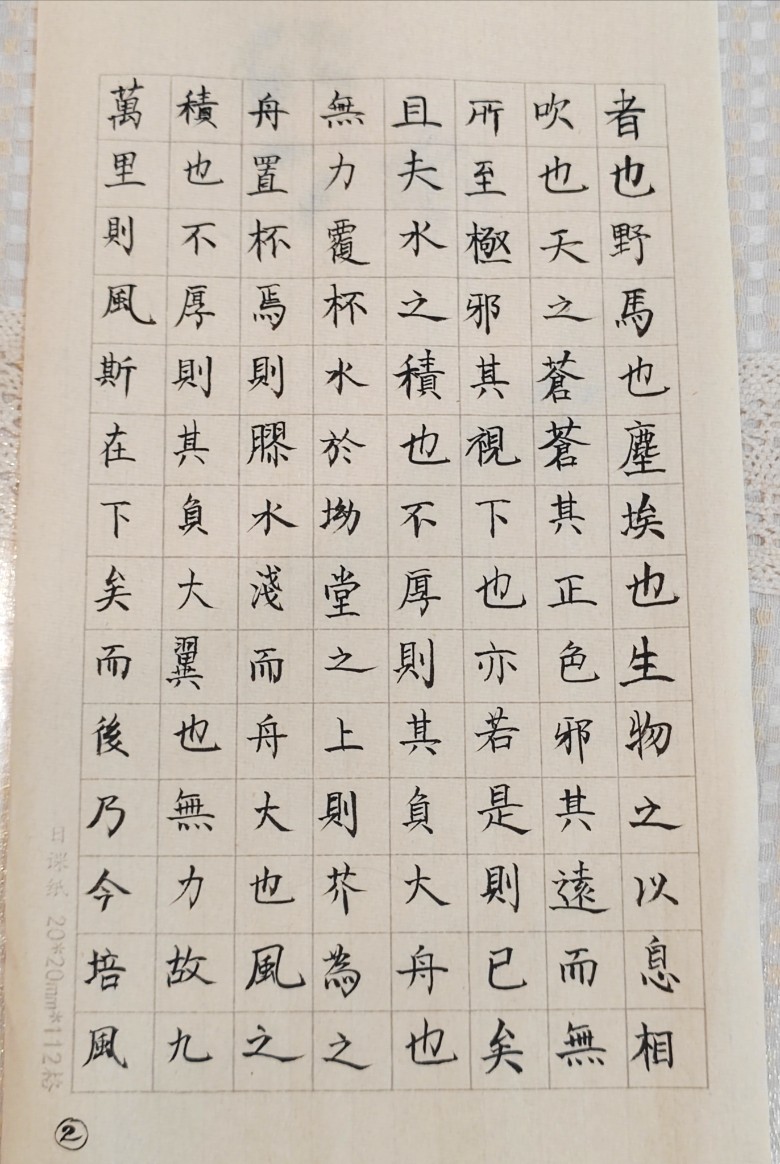 者也野馬也塵埃也生物之以息相
吹也天之蒼蒼其正色邪其遠而無
所至極邪其視下也亦若是則已矣
且夫水之積也不厚則其負大舟也
無力覆杯水於坳堂之上則芥為之
舟置杯焉則膠水淺而舟大也風之
積也不厚則其負大翼也無力故九
萬里則風斯在下矣而後乃今培風
日课纸 20*20mm*112格
②